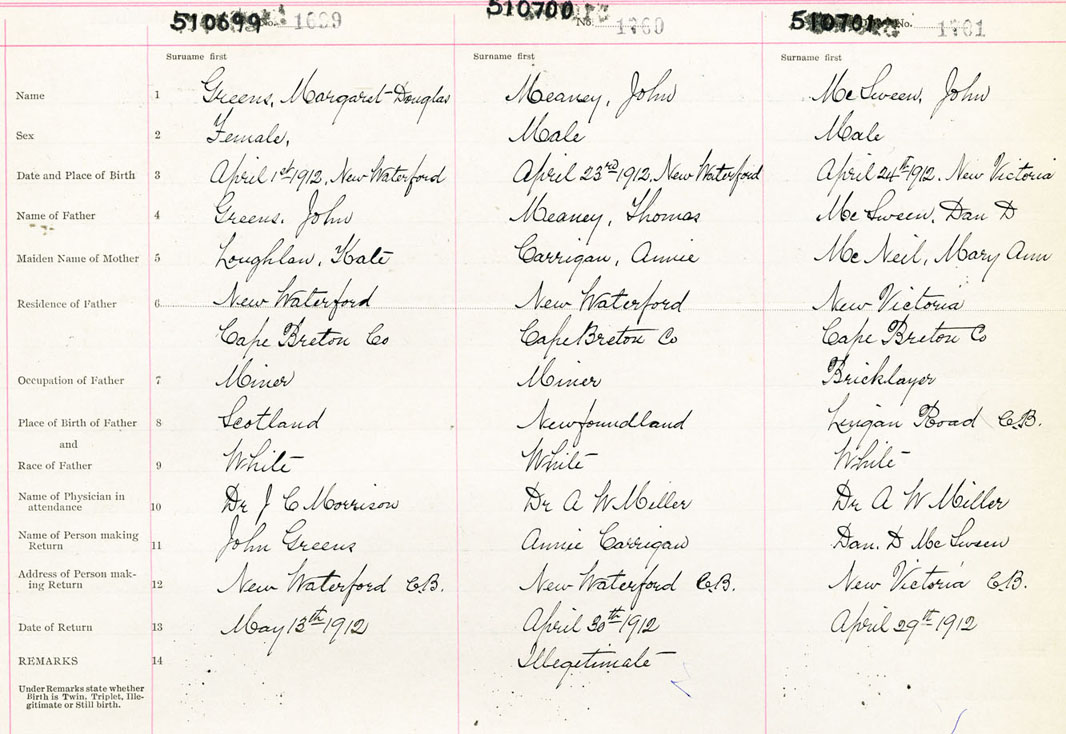 510699 No. 1699
510700 No. 1700
510701 No. 1701
Surname first
Surname first
Surname first
Name 1 Greens, Margaret-Douglas Meaney, John McSween, John
Sex 2 Female, Male Male
Date and Place of Birth 3 April 1st 1912, New Waterford April 23rd 1912. New Waterford April 24th 1912. New Victoria
Name of Father 4 Greens. John Meaney, Thomas McSween, Dan D
Maiden Name of Mother 5 Loughlan, Kate Carrigan, Annie McNeil, Mary Ann
Residence of Father 6 New Waterford New Waterford New Victoria
Cape Breton Co Cape Breton Co Cape Breton Co
Occupation of Father 7 Miner Miner Bricklayer
Place of Birth of Father 8 Scotland Newfoundland Lingan Road C.B.
and
Race of Father 9 White White White
Name of Physician in
attendance 10 Dr J C Morrison Dr A W Miller Dr A W Miller
Name of Person making
Return 11 John Greens Annie Carrigan Dan. D McSween
Address of Person mak-
ing Return 12 New Waterford C.B. New Waterford C.B. New Victoria C.B.
Date of Return 13 May 13th 1912 April 30th 1912 April 29th 1912
REMARKS 14 Illegitimate
Under Remarks state whether
Birth is Twin, Triplet, Ille-
gitimate or Still birth.